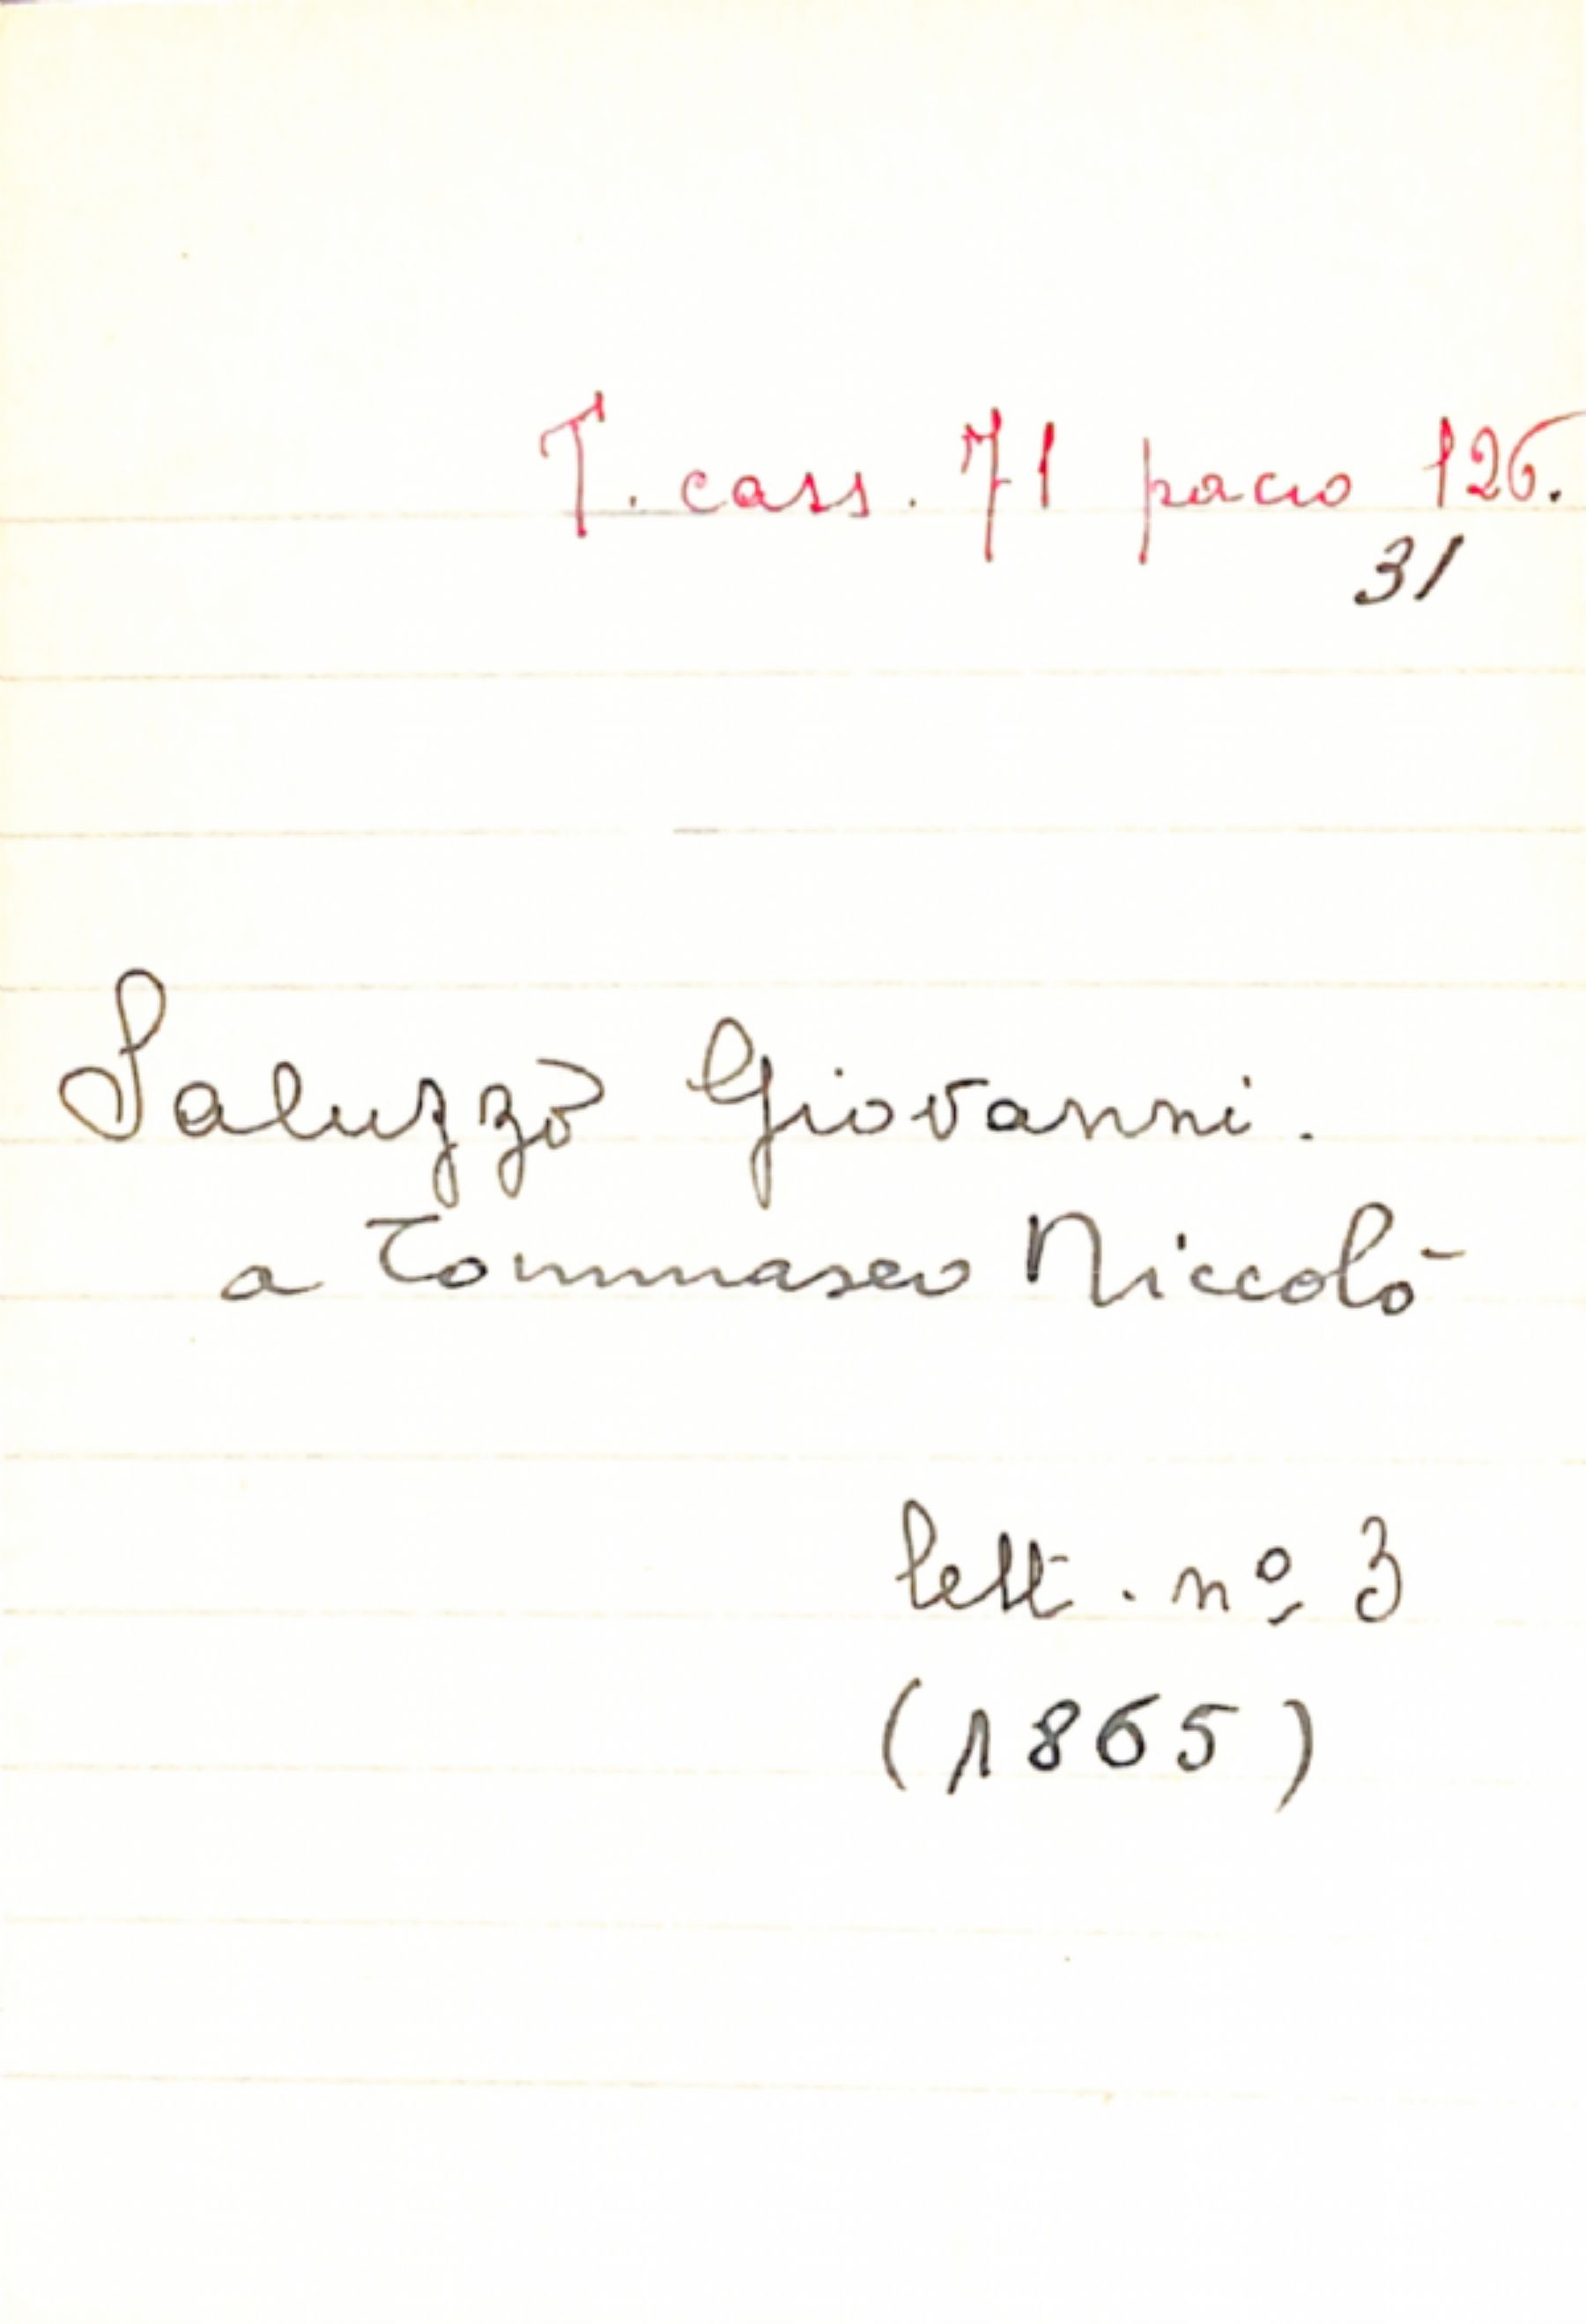 T. cass. 71 pacco 126.
31
Saluzzo Giovanni.
a Tommaseo Niccolò
lett. nº 3
(1865)